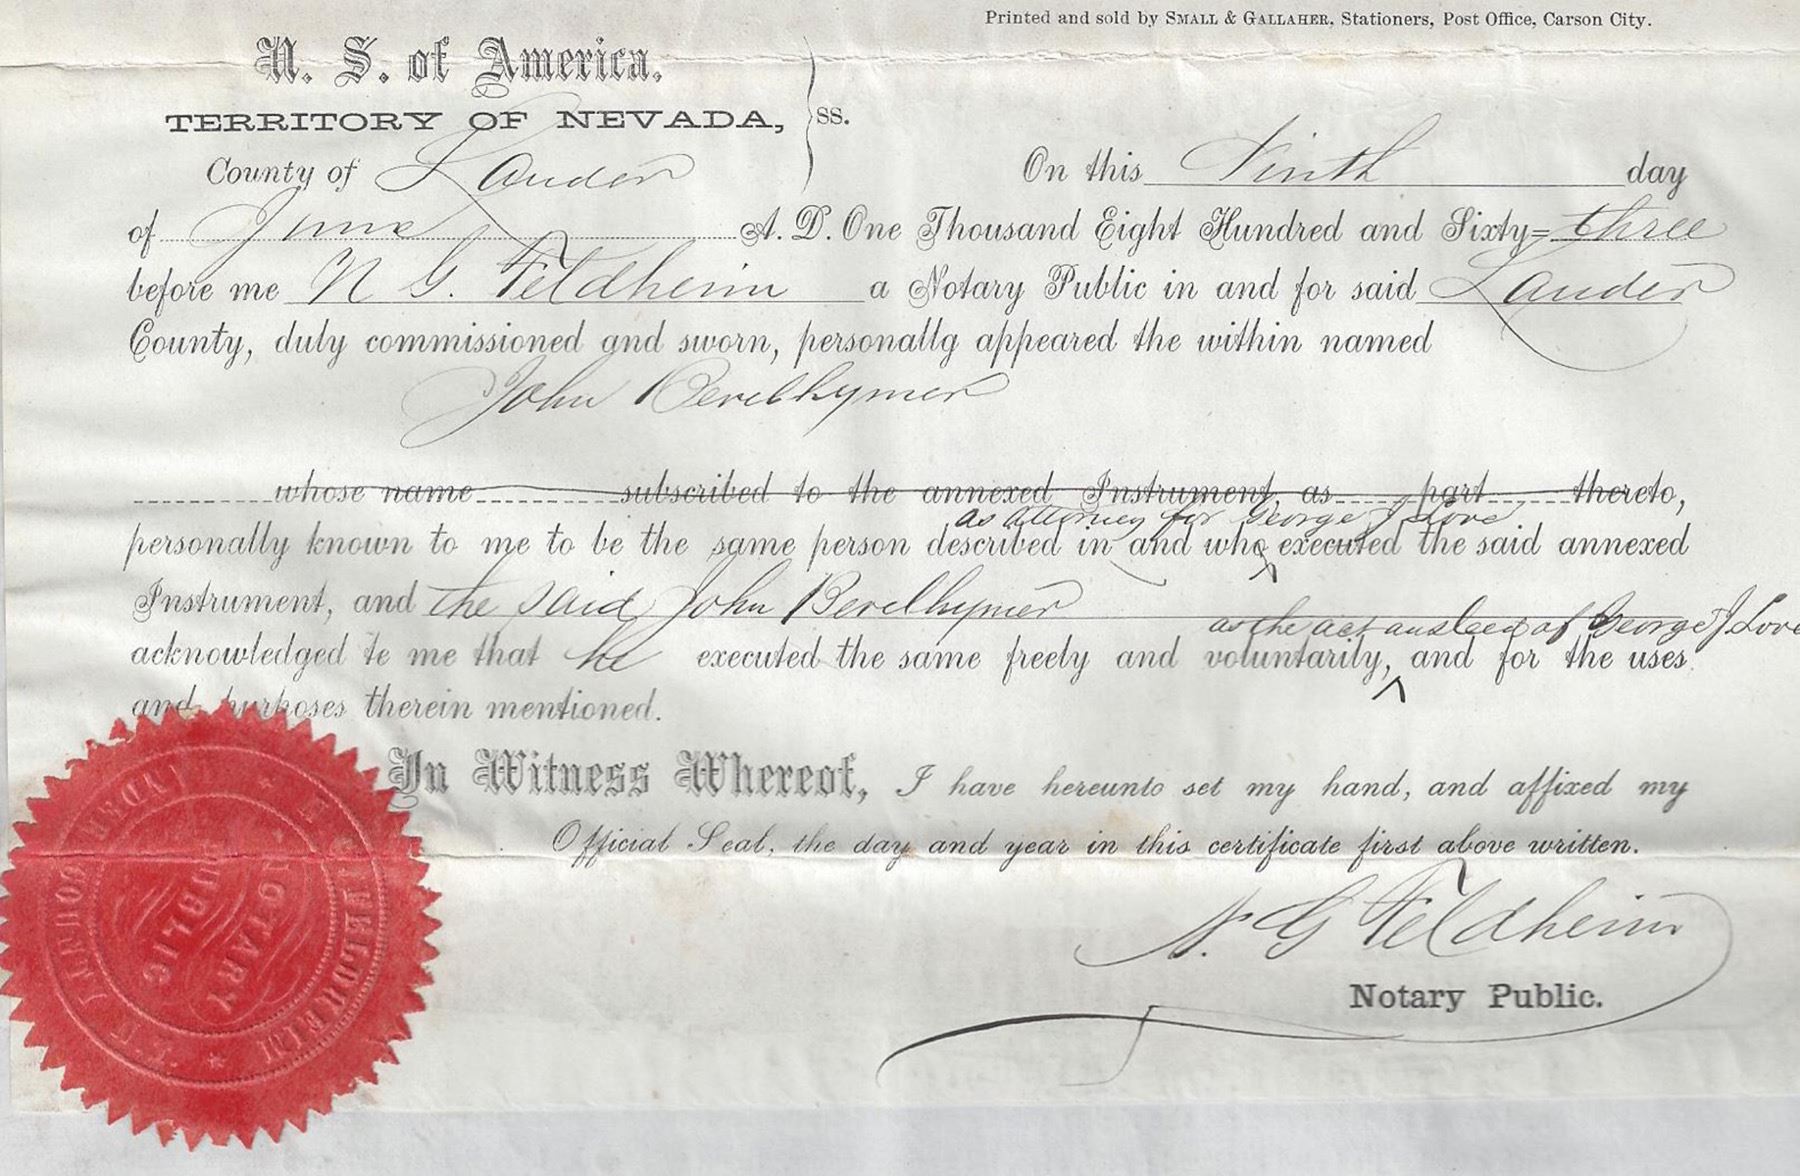 Printed and sold by SMALL & GALLAHER, Stationers, Post Office, Carson City.
U. S. of America.
TERRITORY OF NEVADA, } ss.
County of Lander On this Ninth day
of June A. D. One Thousand Eight Hundred and Sixty=three
before me N G. Feldheim a Notary Public in and for said Lander
County, duly commissioned and sworn, personally appeared the within named
John Berelhymer
whose name subscribed to the annexed Instrument, as part thereto,
as Attorney for George J Love
personally known to me to be the same person described in and who executed the said annexed
Instrument, and the said John Berelhymer
as the act and deed of George J Love
acknowledged to me that he executed the same freely and voluntarily, and for the uses
and purposes therein mentioned.
In Witness Whereof, I have hereunto set my hand, and affixed my
Official Seal, the day and year in this certificate first above written.
N. G Feldheim
Notary Public.
NOTARY
PUBLIC